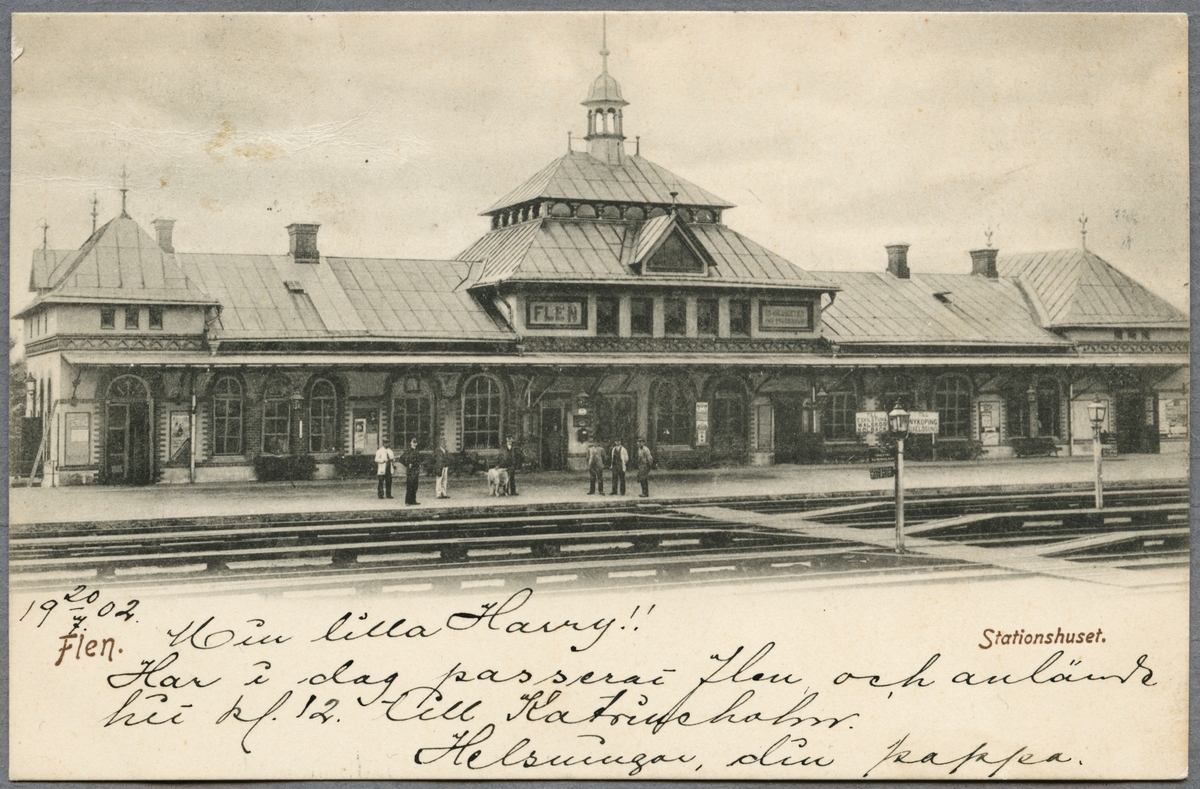 FLEN
NYKÖPING
19 20/7 02.
Flen.
Stationshuset.
Min lilla Harry!!
Har i dag passerat Flen, och anlände
hit kl. 12. till Katrineholm.
Helsningar, din pappa.